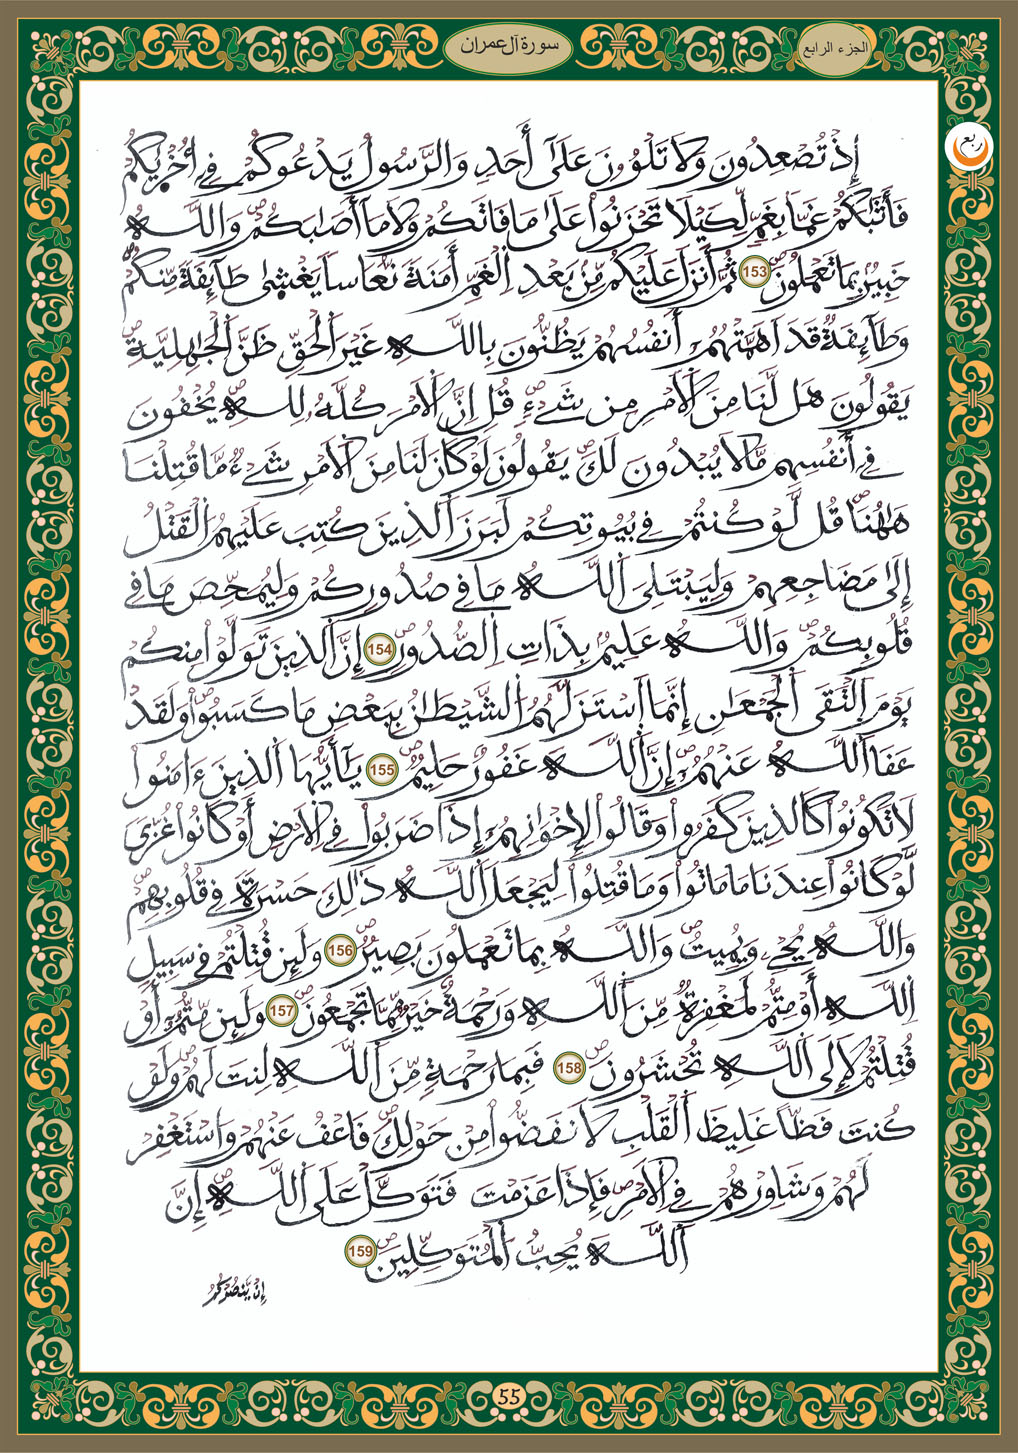 الجزء الرابع
سورة آل عمران
ربع
إِذْ تُصْعِدُونَ وَلَا تَلْوُۥنَ عَلَىٰٓ أَحَدٍ وَالرَّسُولُ يَدْعُوكُمْ فِےٓ أُخْر۪ىٰكُمْ
فَأَثَٰبَكُمْ غَمّاَۢ بِغَمٍّ لِّكَيْلَا تَحْزَنُواْ عَلَىٰ مَا فَاتَكُمْ وَلَا مَآ أَصَٰبَكُمْ وَاللَّهُ
خَبِيرُۢ بِمَا تَعْمَلُونَ 153 ثُمَّ أَنزَلَ عَلَيْكُم مِّنۢ بَعْدِ اِلْغَمِّ أَمَنَةً نُّعَاساً يَغْشَىٰ طَآئِفَةً مِّنكُمْ
وَطَآئِفَةٌ قَدَ اَهَمَّتْهُمُۥٓ أَنفُسُهُمْ يَظُنُّونَ بِاللَّهِ غَيْرَ اَلْحَقِّ ظَنَّ اَلْجَٰهِلِيَّةِ
يَقُولُونَ هَل لَّنَا مِنَ اَلَامْرِ مِن شَےْءٍ قُلِ اِنَّ اَلَامْرَ كُلَّهُۥ لِلهِ يُخْفُونَ
فِےٓ أَنفُسِهِم مَّا لَا يُبْدُونَ لَكَ يَقُولُونَ لَوْ كَانَ لَنَا مِنَ اَلَامْرِ شَےْءٌ مَّا قُتِلْنَا
هَٰهُنَا قُل لَّوْ كُنتُمْ فِے بُيُوتِكُمْ لَبَرَزَ اَلذِينَ كُتِبَ عَلَيْهِمُ اُلْقَتْلُ
إِلَىٰ مَضَاجِعِهِمْ وَلِيَبْتَلِيَ اَللَّهُ مَا فِے صُدُورِكُمْ وَلِيُمَحِّصَ مَا فِے
قُلُوبِكُمْ وَاللَّهُ عَلِيمُۢ بِذَاتِ اِلصُّدُورِ 154 إِنَّ اَلذِينَ تَوَلَّوْاْ مِنكُمْ
يَوْمَ اَلْتَقَى اَلْجَمْعَٰنِ إِنَّمَا اَسْتَزَلَّهُمُ اُلشَّيْطَٰنُ بِبَعْضِ مَا كَسَبُواْ وَلَقَدْ
عَفَا اَللَّهُ عَنْهُمُۥٓ إِنَّ اَللَّهَ غَفُورٌ حَلِيمٌ 155 يَٰٓأَيُّهَا اَلذِينَ ءَامَنُواْ
لَا تَكُونُواْ كَالذِينَ كَفَرُواْ وَقَالُواْ لِإِخْوَٰنِهِمُۥٓ إِذَا ضَرَبُواْ فِے اِلَارْضِ أَوْ كَانُواْ غُزّىً
لَّوْ كَانُواْ عِندَنَا مَا مَاتُواْ وَمَا قُتِلُواْ لِيَجْعَلَ اَللَّهُ ذَٰلِكَ حَسْرَةً فِے قُلُوبِهِمْ
وَاللَّهُ يُحْيِۦ وَيُمِيتُ وَاللَّهُ بِمَا تَعْمَلُونَ بَصِيرٌ 156 وَلَئِن قُتِلْتُمْ فِے سَبِيلِ
اِللَّهِ أَوْ مِتُّمْ لَمَغْفِرَةٌ مِّنَ اَللَّهِ وَرَحْمَةٌ خَيْرٌ مِّمَّا تَجْمَعُونَ 157 وَلَئِن مِّتُّمُۥٓ أَوْ
قُتِلْتُمْ لَإِلَى اَللَّهِ تُحْشَرُونَ 158 فَبِمَا رَحْمَةٍ مِّنَ اَللَّهِ لِنتَ لَهُمْ وَلَوْ
كُنتَ فَظّاً غَلِيظَ اَلْقَلْبِ لَانفَضُّواْ مِنْ حَوْلِكَ فَاعْفُ عَنْهُمْ وَاسْتَغْفِرْ
لَهُمْ وَشَاوِرْهُمْ فِے اِلَامْرِ فَإِذَا عَزَمْتَ فَتَوَكَّلْ عَلَى اَللَّهِ إِنَّ
اَللَّهَ يُحِبُّ اُلْمُتَوَكِّلِينَ 159
إِنْ يَّنصُرْكُمُ
55